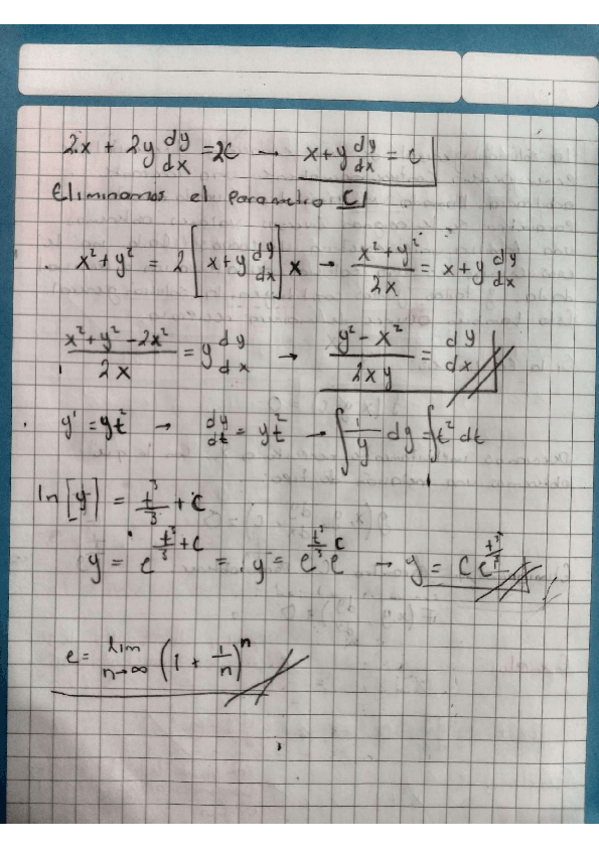 2x + 2y dy/dx = 2c → x + y dy/dx = c
Eliminamos el parametro C
x² + y² = 2 [x + y dy/dx] x → (x² + y²)/2x = x + y dy/dx
(x² + y² - 2x²)/2x = y dy/dx → (y² - x²)/2xy = dy/dx
y' = yt² → dy/dt = yt² → ∫ 1/y dy = ∫ t² dt
ln [y] = t³/3 + c
y = e^(t³/3 + c) = y = e^(t³/3) e^c → y = c e^(t³/3)
e = lim n→∞ (1 + 1/n)^n